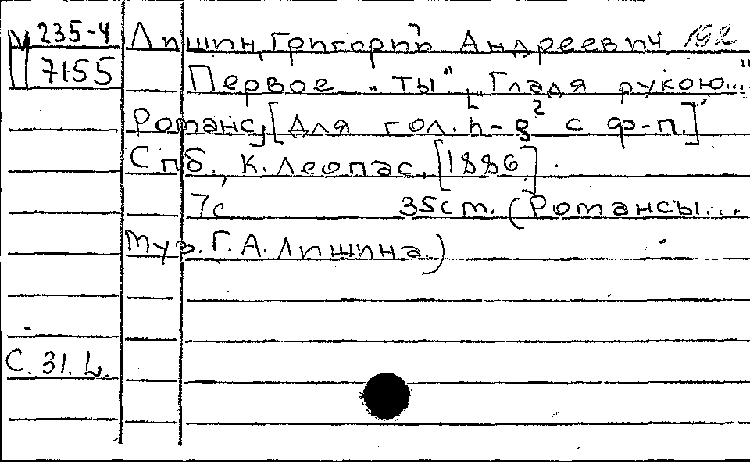 М 235-4 Лишин, Григорий Андреевич
7155 Первое "ты", ["Гладя рукою..."
Романс, [Для гол. h-g² с ф-п.]
Спб., К. Леопас, [1886]
7с 35cm. (Романсы...
муз. Г. А. Лишина.)
С. 31. L.